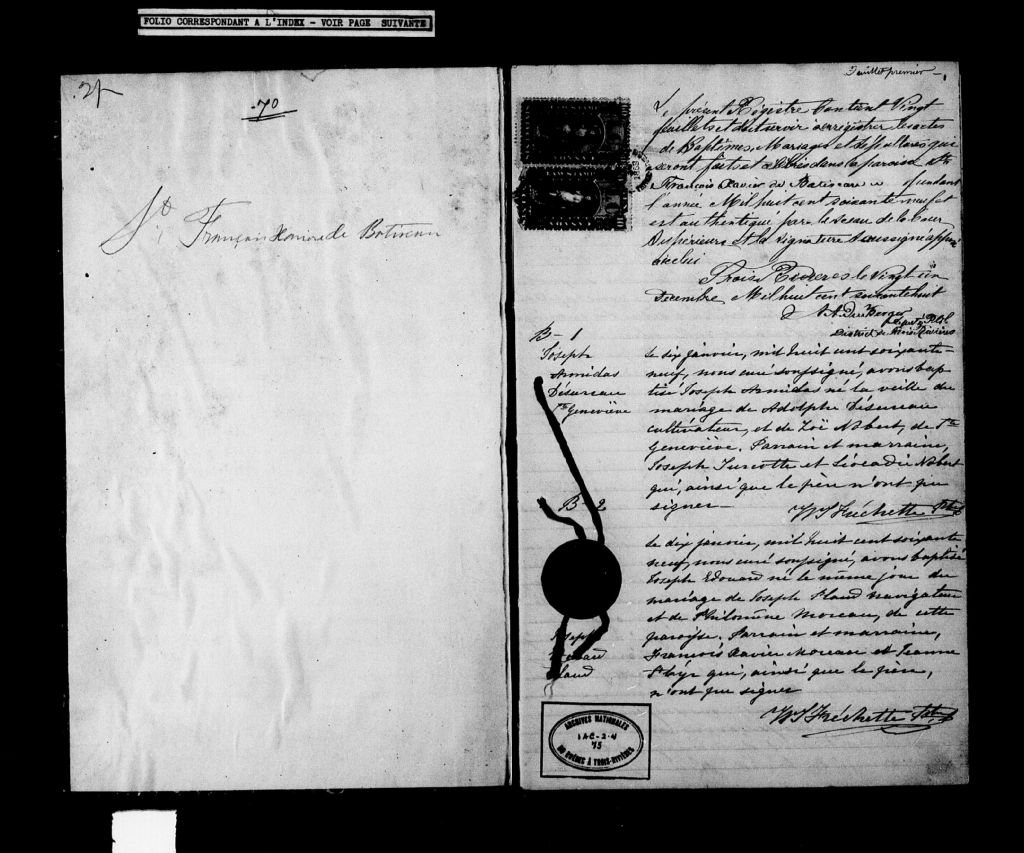 FOLIO CORRESPONDANT A L'INDEX - VOIR PAGE SUIVANTE
70
St. François Xavier de Batiscan
Feuillet premier
Le présent Régistre contient Vingt
feuillets et doit servir à enrégistrer les actes
de Baptêmes, Mariages et Sépultures qui
seront faits et célébrés dans la paroisse de
François Xavier de Batiscan pendant
l'année Mil huit cent soixante neuf et
est authentiqué par le sceau de la Cour
Supérieure et la signature du soussigné
Trois Rivières le Vingt
Décembre Mil huit cent soixante huit
Député P.C.S.
District de Trois Rivières
B-1
Joseph
Armidas
Désureau
Ste Geneviève
Le dix janvier, mil huit cent soixante-
neuf, nous curé soussigné, avons bap-
tisé Joseph Armidas né la veille du
mariage de Adolphe Désureau
cultivateur, et de Zoë Nobert, de Ste
Geneviève. Parrain et marraine,
Joseph Turcotte et Léocadie Nobert
qui, ainsi que le père n'ont pu
signer—
W J Fréchette Ptre
B-2
Joseph
Edouard
Le dix janvier, mil huit cent soixante
neuf, nous curé soussigné, avons baptisé
Joseph Edouard né le même jour du
mariage de Joseph navigateur
et de Philomène Moreau, de cette
paroisse. Parrain et marraine,
François Xavier Moreau et Jeanne
qui, ainsi que le père,
n'ont pu signer
W J Fréchette Ptre
ARCHIVES NATIONALES
1AC-2-4
75
DU QUÉBEC À TROIS-RIVIÈRES